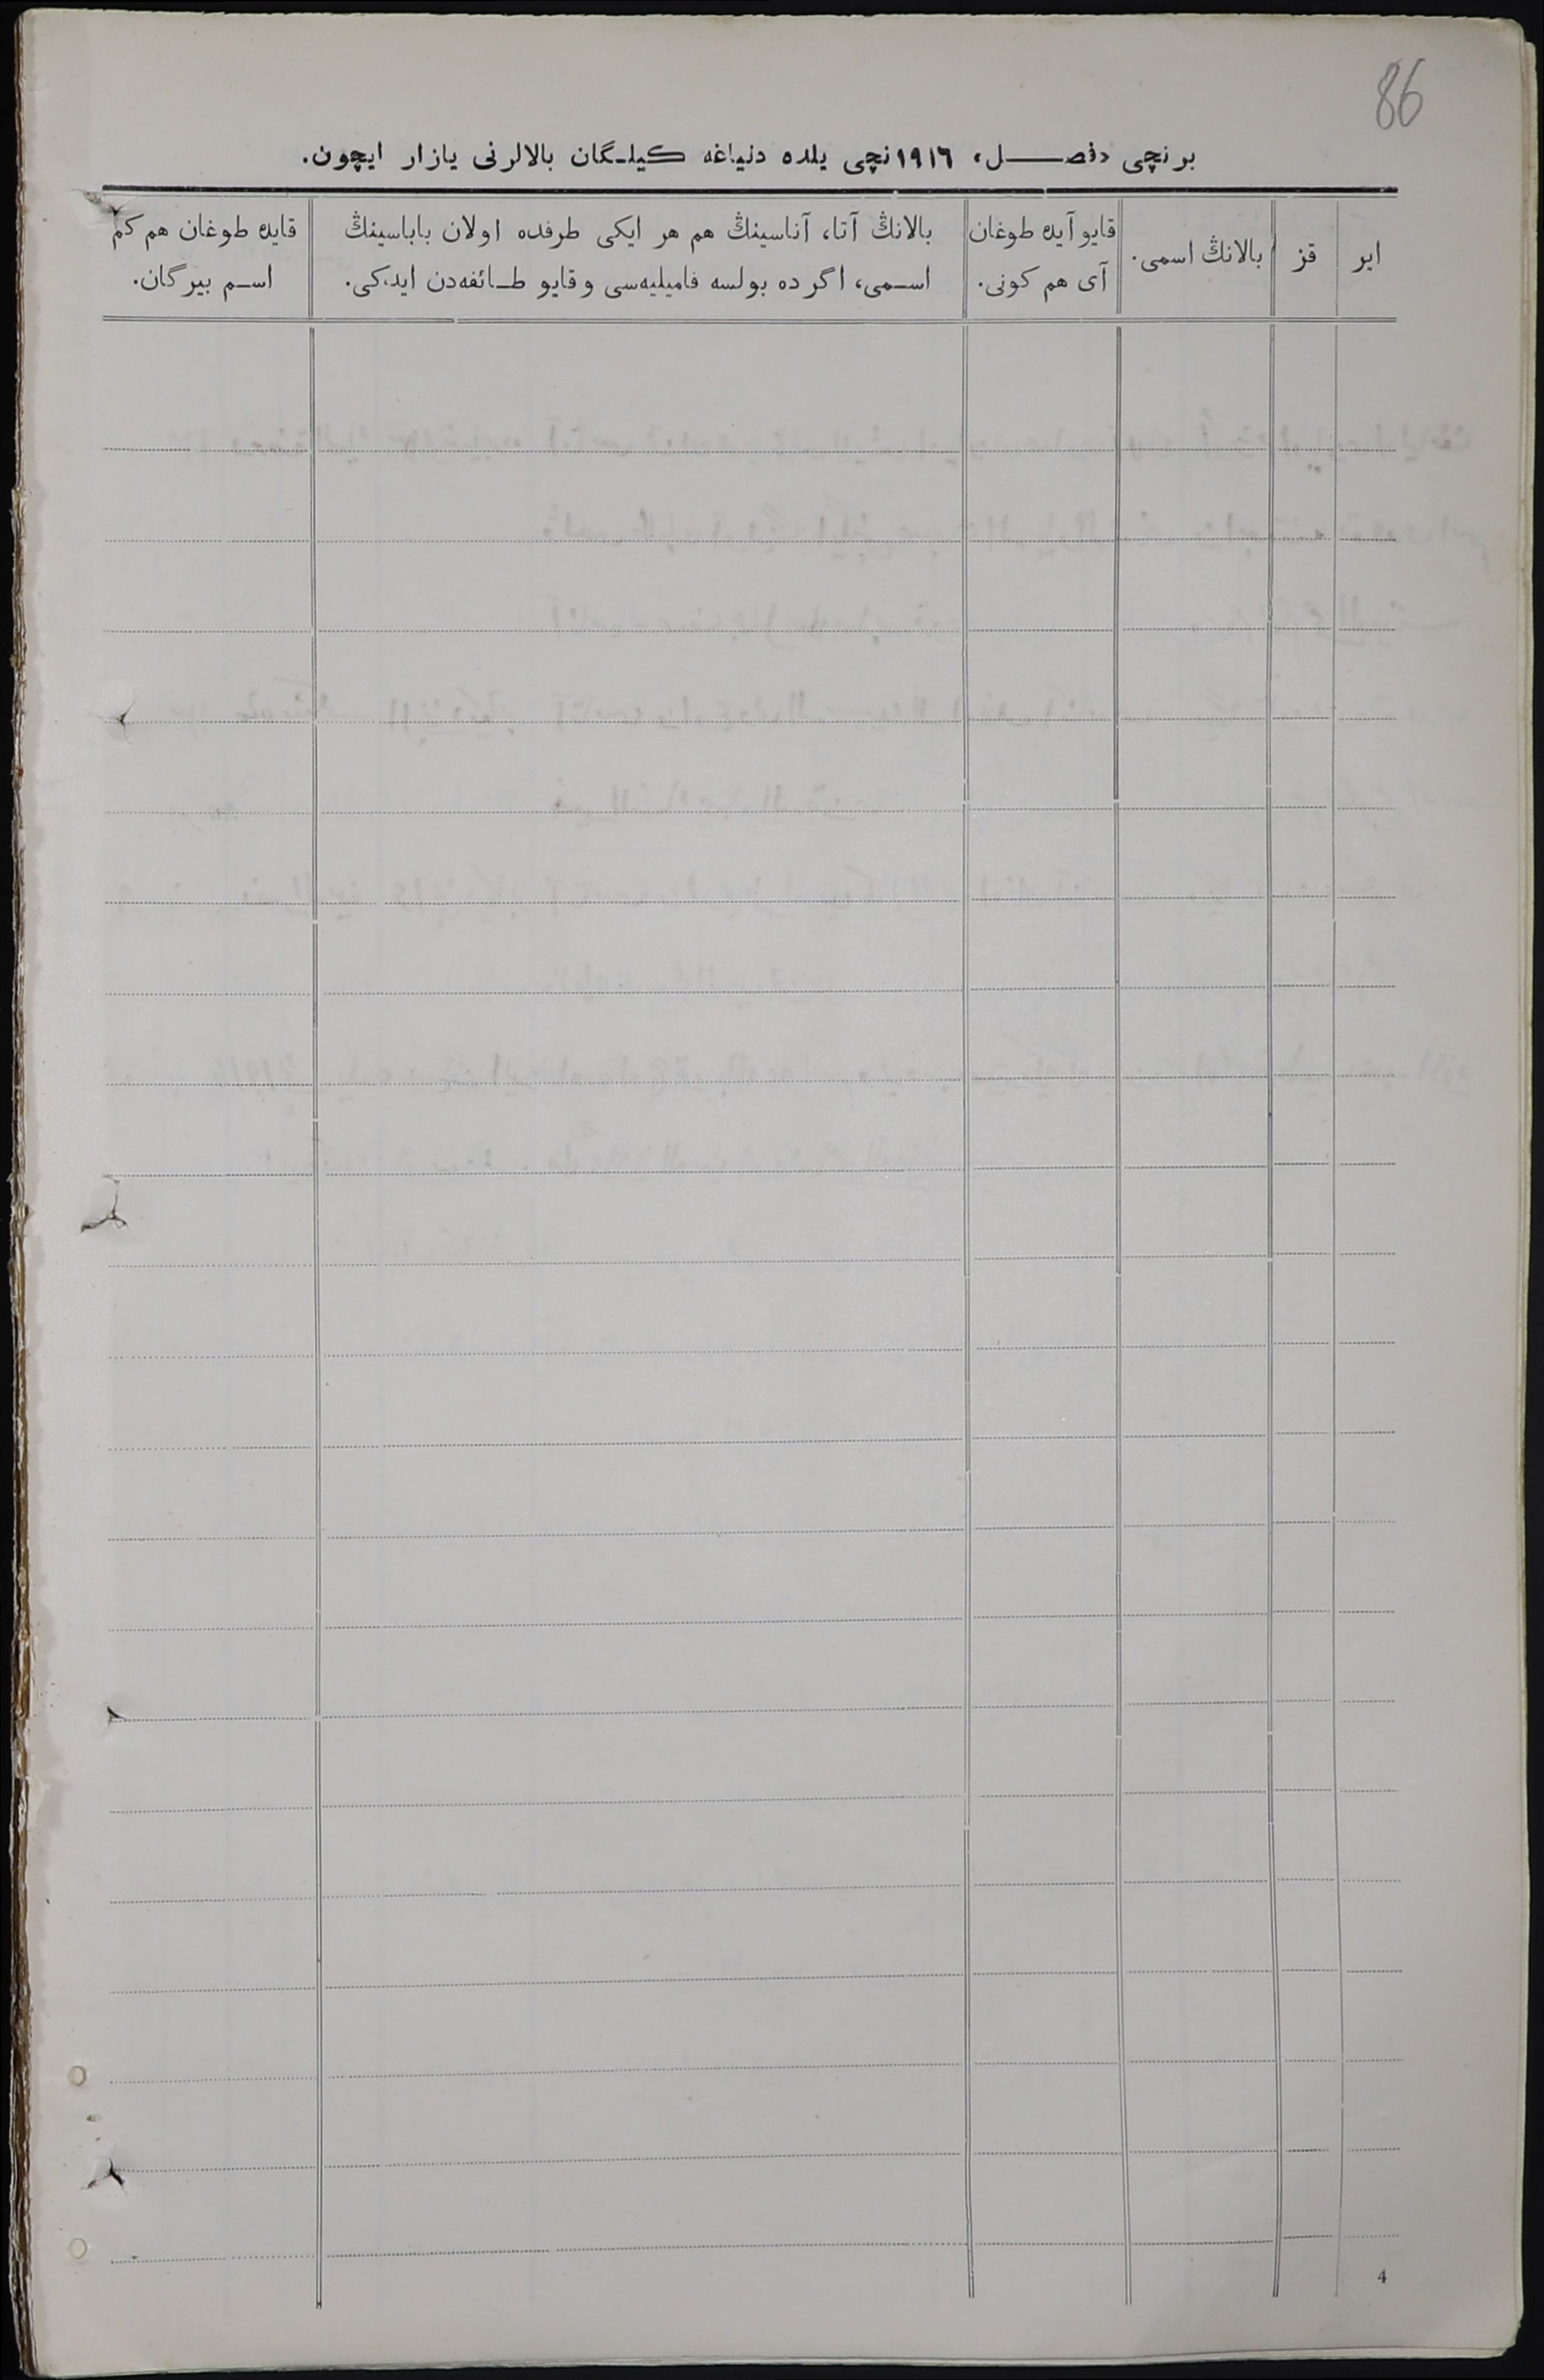 86
برنچی «فصل» ١٩١٦نچی يلده دنياغه كيلگان بالالرنی يازار ايچون.
اير
قز
بالانڭ اسمی.
قايو آيده طوغان
آی هم كونی.
بالانڭ آتا، آناسينڭ هم هر ايكی طرفده اولان باباسينڭ
اسمی، اگرده بولسه فاميليه‌سی و قايو طائفه‌دن ايدكی.
قايده طوغان هم كم
اسم بيرگان.
4